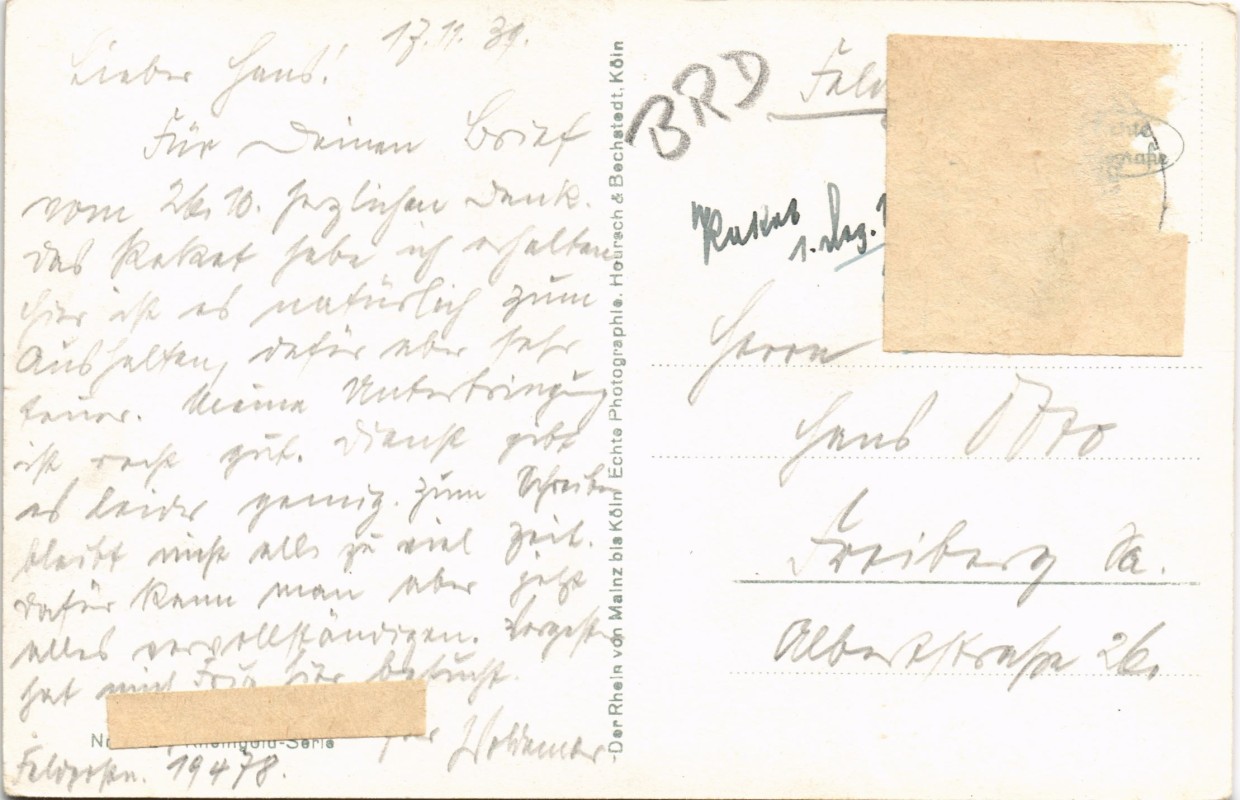 17.11.39.
Lieber Hans!
Für Deinen Brief
vom 26.10. herzlichen Dank.
Das Paket habe ich erhalten
Hier ist es natürlich zum
Aushalten, dafür aber sehr
teuer. Meine Unterbringung
ist recht gut. Dienst gibt
es leider genug. Zum Schreiben
bleibt nicht allzu viel Zeit.
Dafür kann man aber jetzt
alles vervollständigen. Vorgestern
hat mich
hier besucht.
Woldemar
Feldpostn. 19478.
Rheingold-Serie
Der Rhein von Mainz bis Köln Echte Photographie. Hoursch & Bechstedt, Köln
BRD
1. Dez.
Herrn
Hans Otto
Freiberg Sa.
Albertstraße 26.